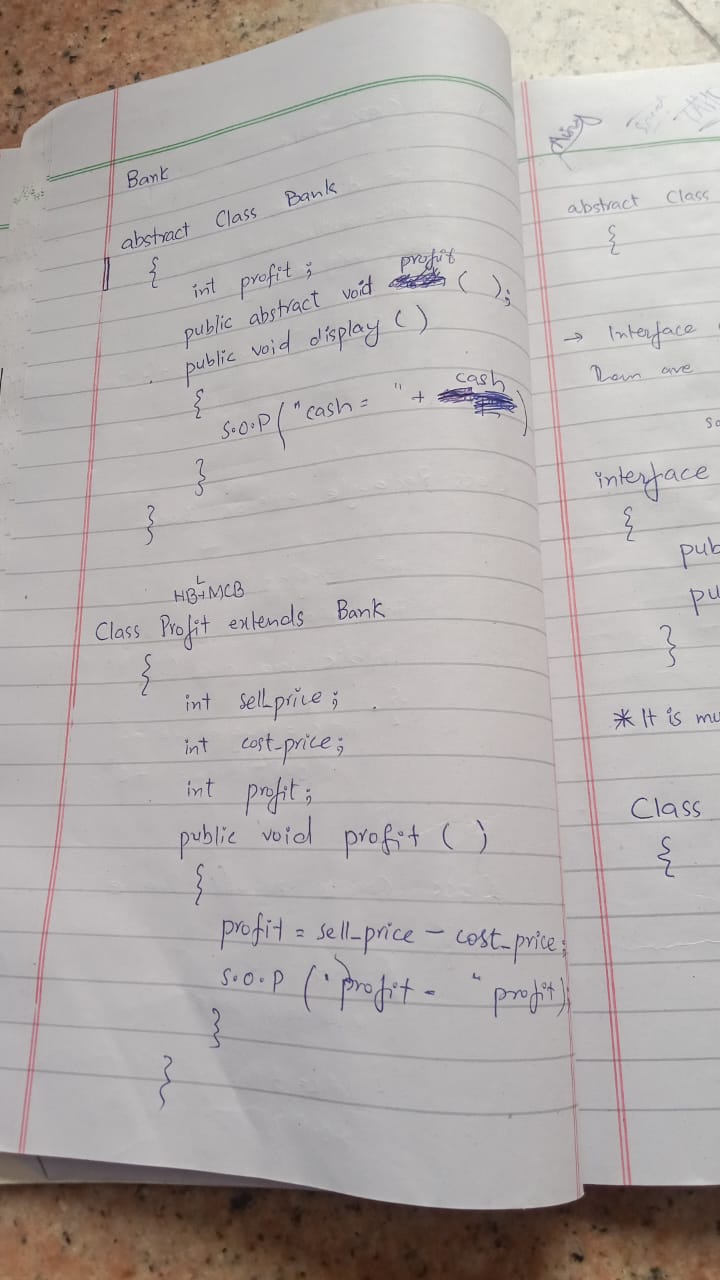 Bank
abstract Class Bank
{
int profit ;
public abstract void profit ( );
public void display ( )
{
S.O.P ( "cash = " + cash )
}
}
HBL + MCB
Class Profit extends Bank
{
int sell_price ;
int cost_price ;
int profit ;
public void profit ( )
{
profit = sell_price - cost_price ;
S.O.P ( " profit = " profit ) ;
}
}
abstract Class
{
→ Interface
are
interface
{
pub
pu
}
* It is mu
Class
{